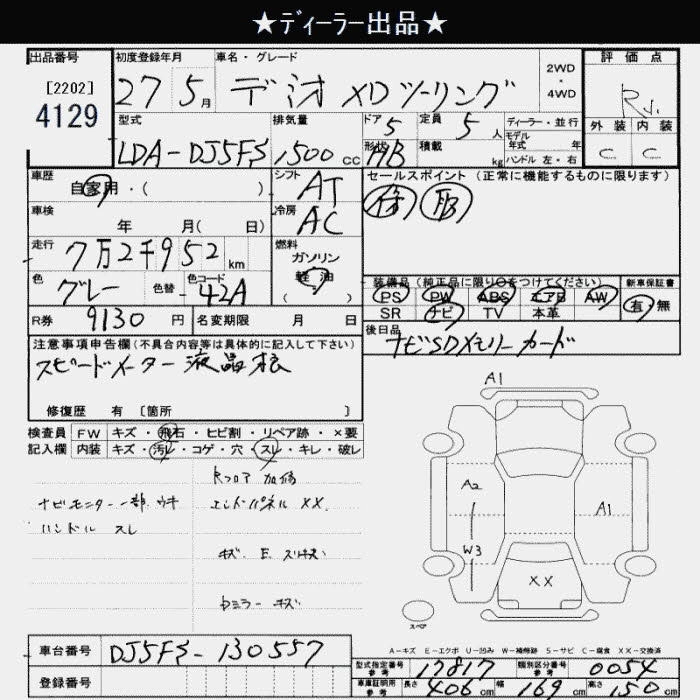 ★ディーラー出品★
出品番号
[2202]
4129
初度登録年月
27 5月
車名・グレード
デミオ XDツーリング
2WD
・
4WD
評価点
R
外装 内装
C C
型式
LDA-DJ5FS
排気量
1500 CC
ドア 5
形状 HB
定員 5 人
積載 kg
ディーラー・並行
モデル年式 年
ハンドル 左・右
車歴
自家用・( )
シフト
AT
セールスポイント (正常に機能するものに限ります)
車検
年 月( 日)
冷房
AC
走行
7万2千952 km
燃料
ガソリン
軽油
( )
色
グレー
色替
色コード
42A
装備品(純正品に限り○をつけてください)
PS PW ABS エアB AW
SR ナビ TV 本革
新車保証書
有 無
R券 9130 円
名変期限 月 日
後日品
ナビSDメモリーカード
注意事項申告欄(不具合内容等は具体的に記入して下さい)
スピードメーター液晶
修復歴 有 [箇所 ]
検査員 FW キズ・飛石・ヒビ割・リペア跡・×要
記入欄 内装 キズ・汚レ・コゲ・穴・スレ・キレ・破レ
Rフロア 加修
ナビモニター一部 ウキ
エンドパネル XX.
ハンドル スレ
ミラー キズ
A1
A2
A1
W3
XX
スペア
A-キズ E-エクボ U-凹み W-補修跡 S-サビ C-腐食 XX-交換済
車台番号 DJ5FS-130557
登録番号
型式指定番号 参考 17817
類別区分番号 参考 0054
車庫証明用 参考 長さ 406 cm 幅 169 cm 高さ 150 cm